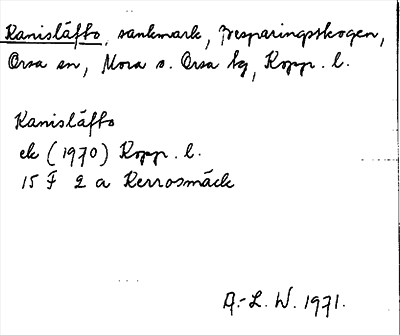 Kanisláffo, sankmark, Besparingsskogen,
Orsa sn, Mora o. Orsa tg, Kopp. l.
Kanisláffo
ek (1970) Kopp. l.
15 F 2 a Kerrosmäck
A.-L. W. 1971.